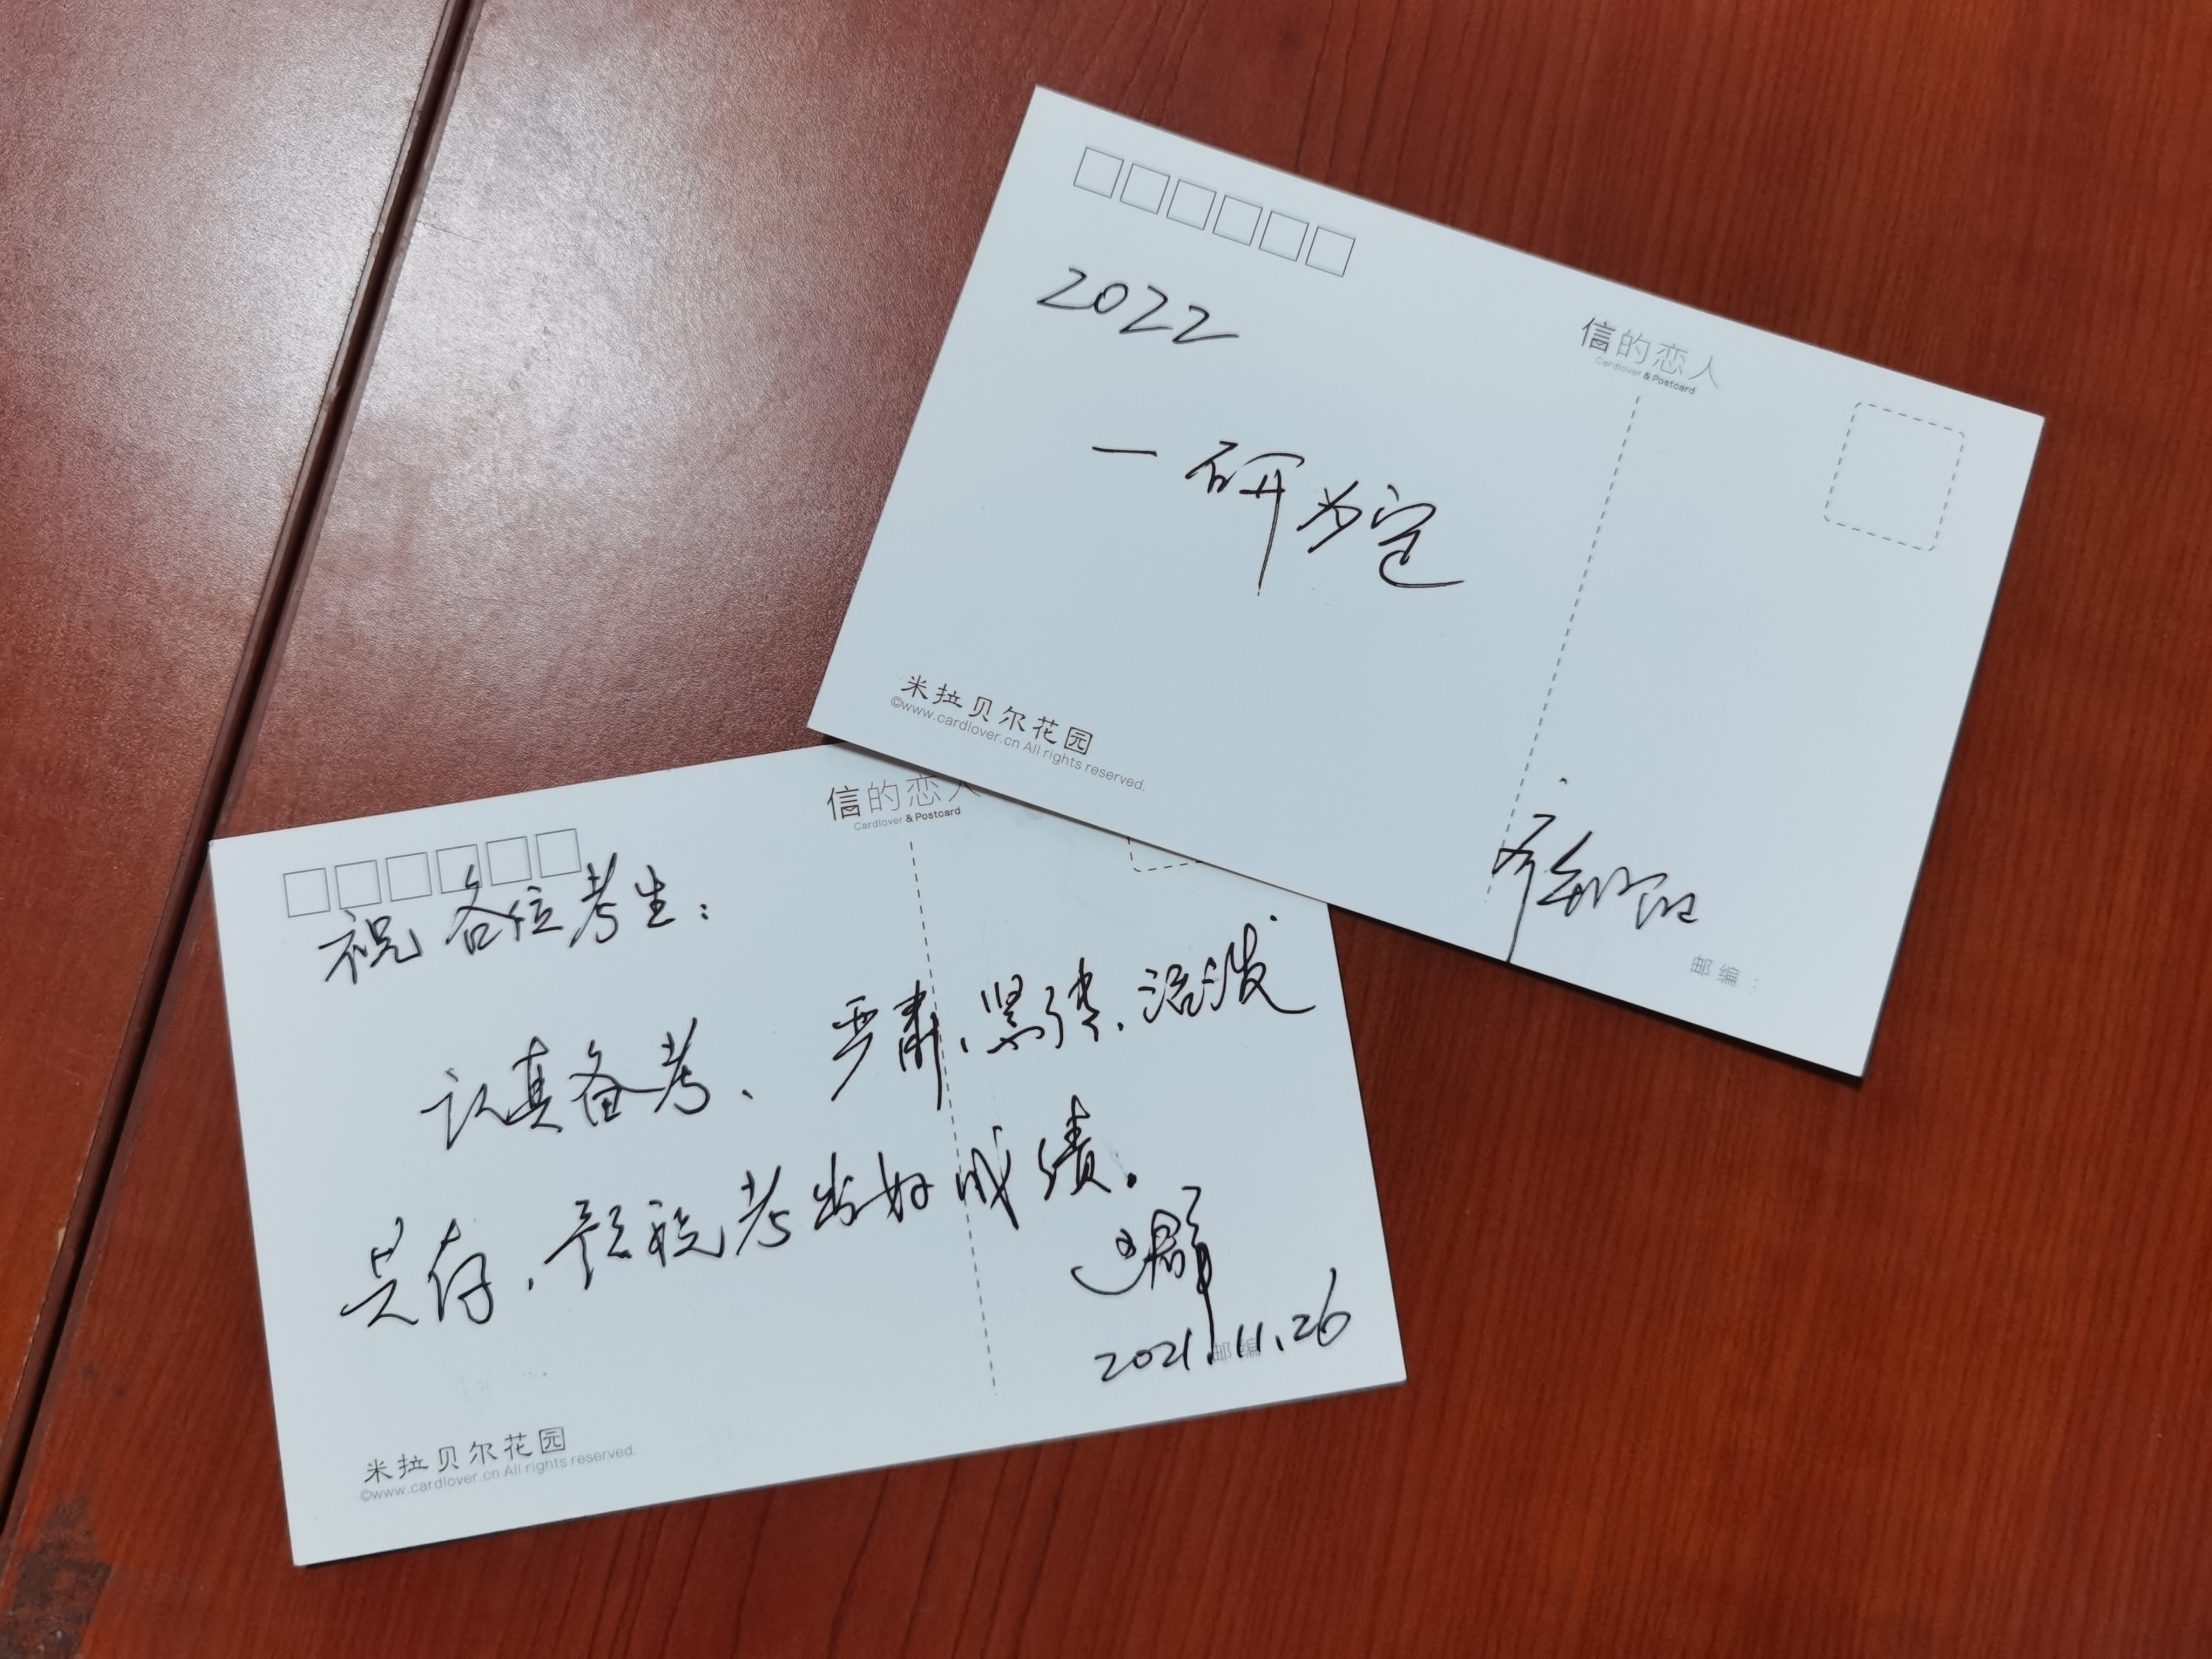 2022
一研为定
信的恋人
Cardlover & Postcard
米拉贝尔花园
©www.cardlover.cn All rights reserved.
邮编:
信的恋人
Cardlover & Postcard
祝各位考生:
认真备考、严肃,紧张,活泼
共存,预祝考出好成绩。
2021.11.26
邮编
米拉贝尔花园
©www.cardlover.cn All rights reserved.